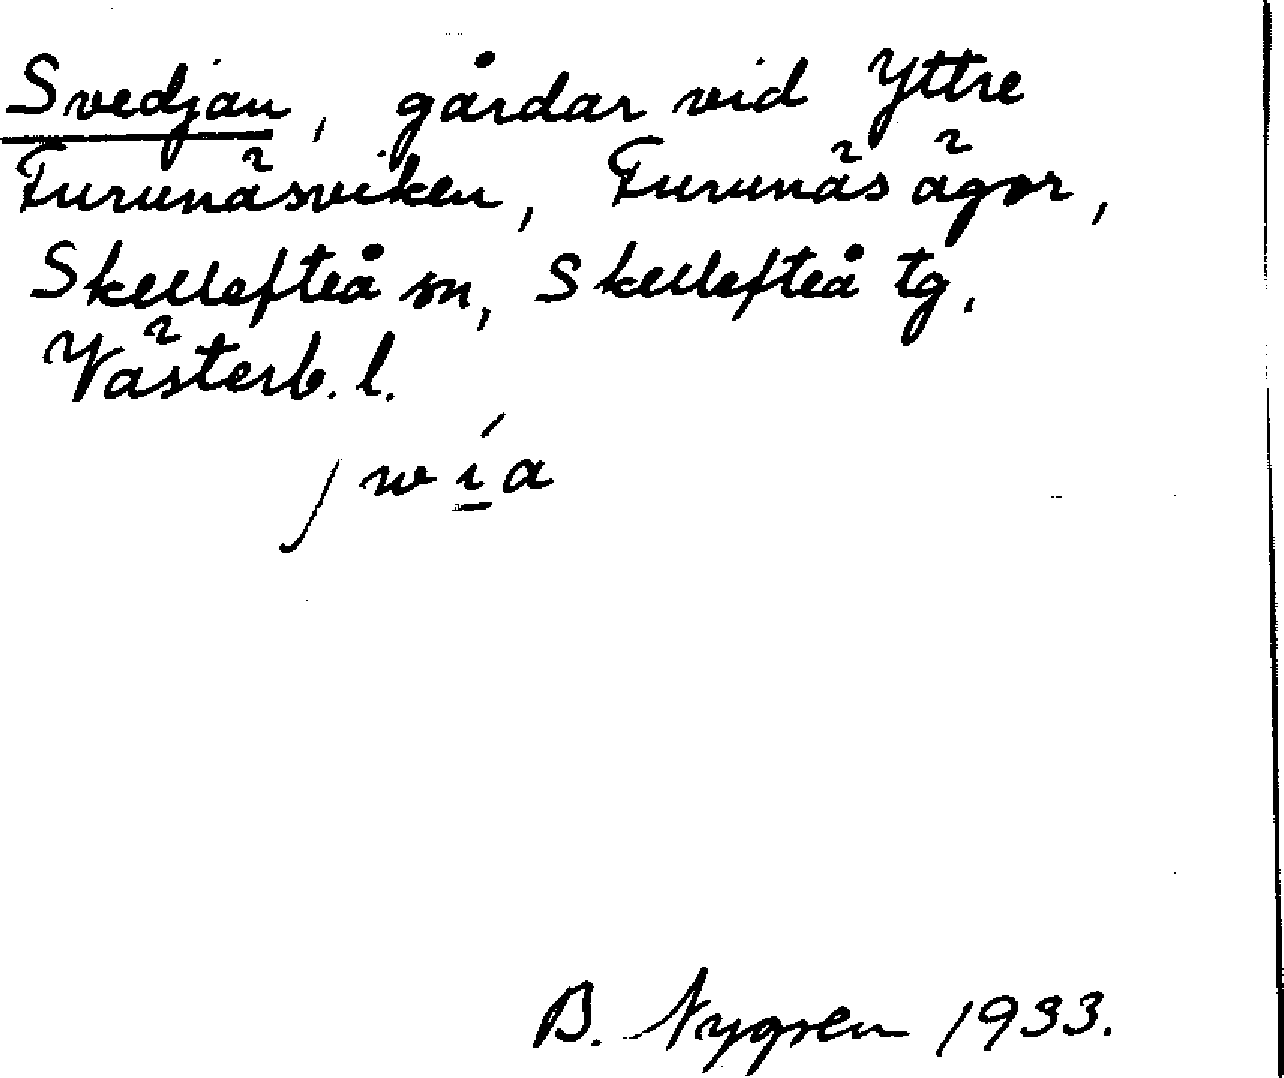 Svedjan, gårdar vid Yttre
Furunäsviken, Furunäs ägor,
Skellefteå sn, Skellefteå tg.
Västerb. l.
B. Nygren 1933.